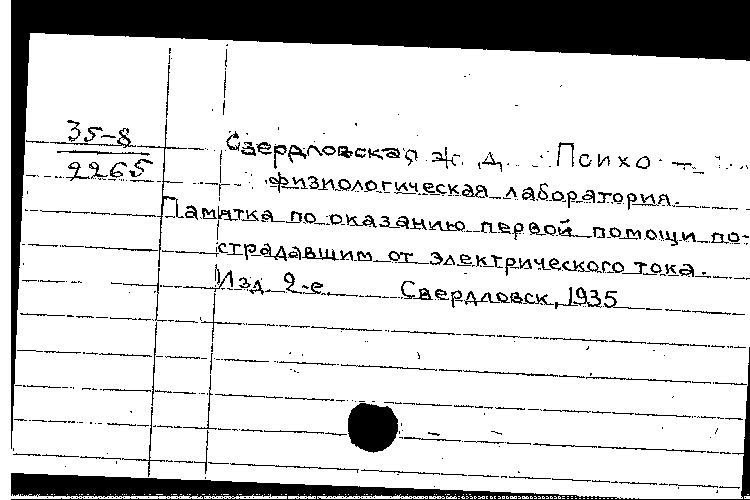 35-8
2265
Свердловская ж. д. Психо-
физиологическая лаборатория.
Памятка по оказанию первой помощи по-
страдавшим от электрического тока.
Изд. 2-е. Свердловск, 1935